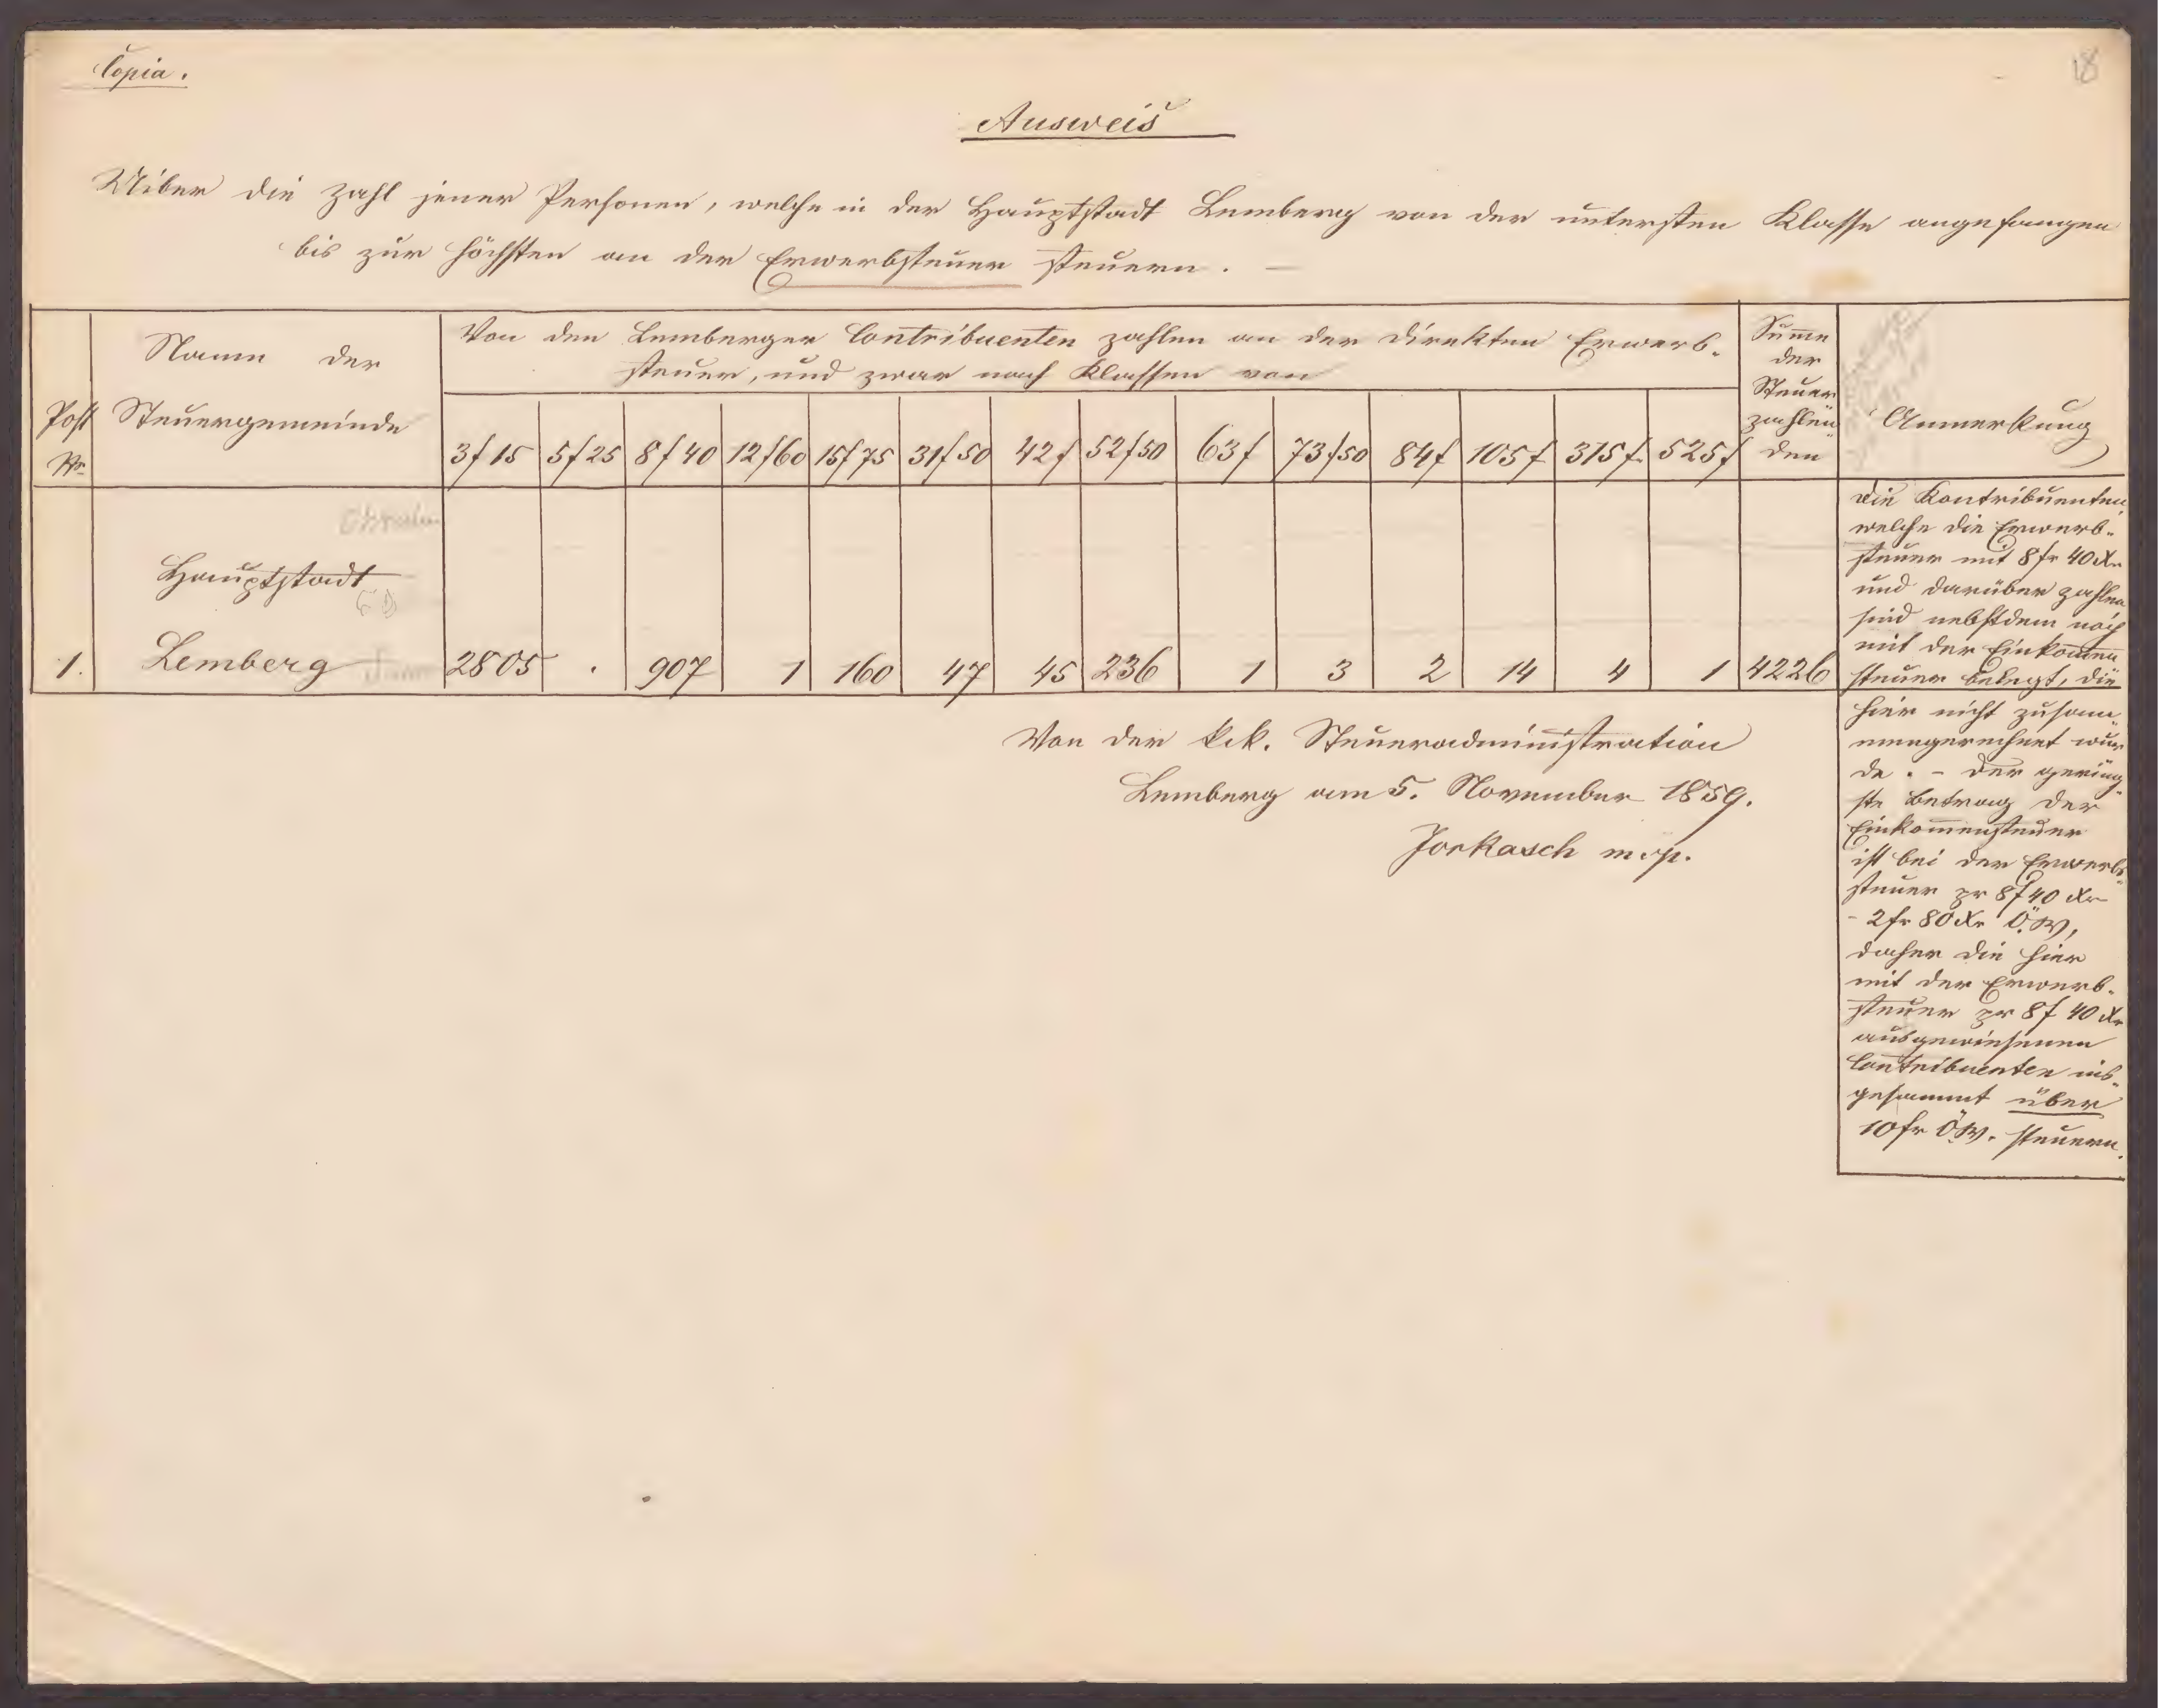 Copia.
18
Ausweis
Uiber die Zahl jener Personen, welche in der Hauptstadt Lemberg von der untersten Klasse angefangen
bis zur höchsten an der Erwerbsteuer steuern. —
Post
Nr.
Name der
Steuergemeinde
Von den Lemberger Contribuenten zahlen an der direkten Erwerb-
steuer, und zwar nach Klassen von
3f 15 5f 25 8f 40 12f 60 15f 75 31f 50 42f 52f 50 63f 73f 50 84f 105f 315f 525f
Summe
der
Steuer
zahlen-
den
Anmerkung
Hauptstadt
1. Lemberg 2805 . 907 1 160 47 45 236 1 3 2 14 4 1 4226
Die Kontribuenten,
welche die Erwerb-
steuer mit 8 fr 40 Xr
und darüber zahlen
sind nebstdem noch
mit der Einkommen
steuer belegt, die
hier nicht zusam-
mengerechnet wur
de. – Der gering-
ste Betrag der
Einkommensteuer
ist bei der Erwerb-
steuer pr 8f 40 Xr
- 2 fr 80 Xr Ö.W,
daher die hier
mit der Erwerb-
steuer pr 8f 40 Xr
ausgewiesenen
Contribuenten ins-
gesammt über
10 fr Ö.W. steuern.
Von der k.k. Steueradministration
Lemberg am 5. November 1859.
Jorkasch m.p.